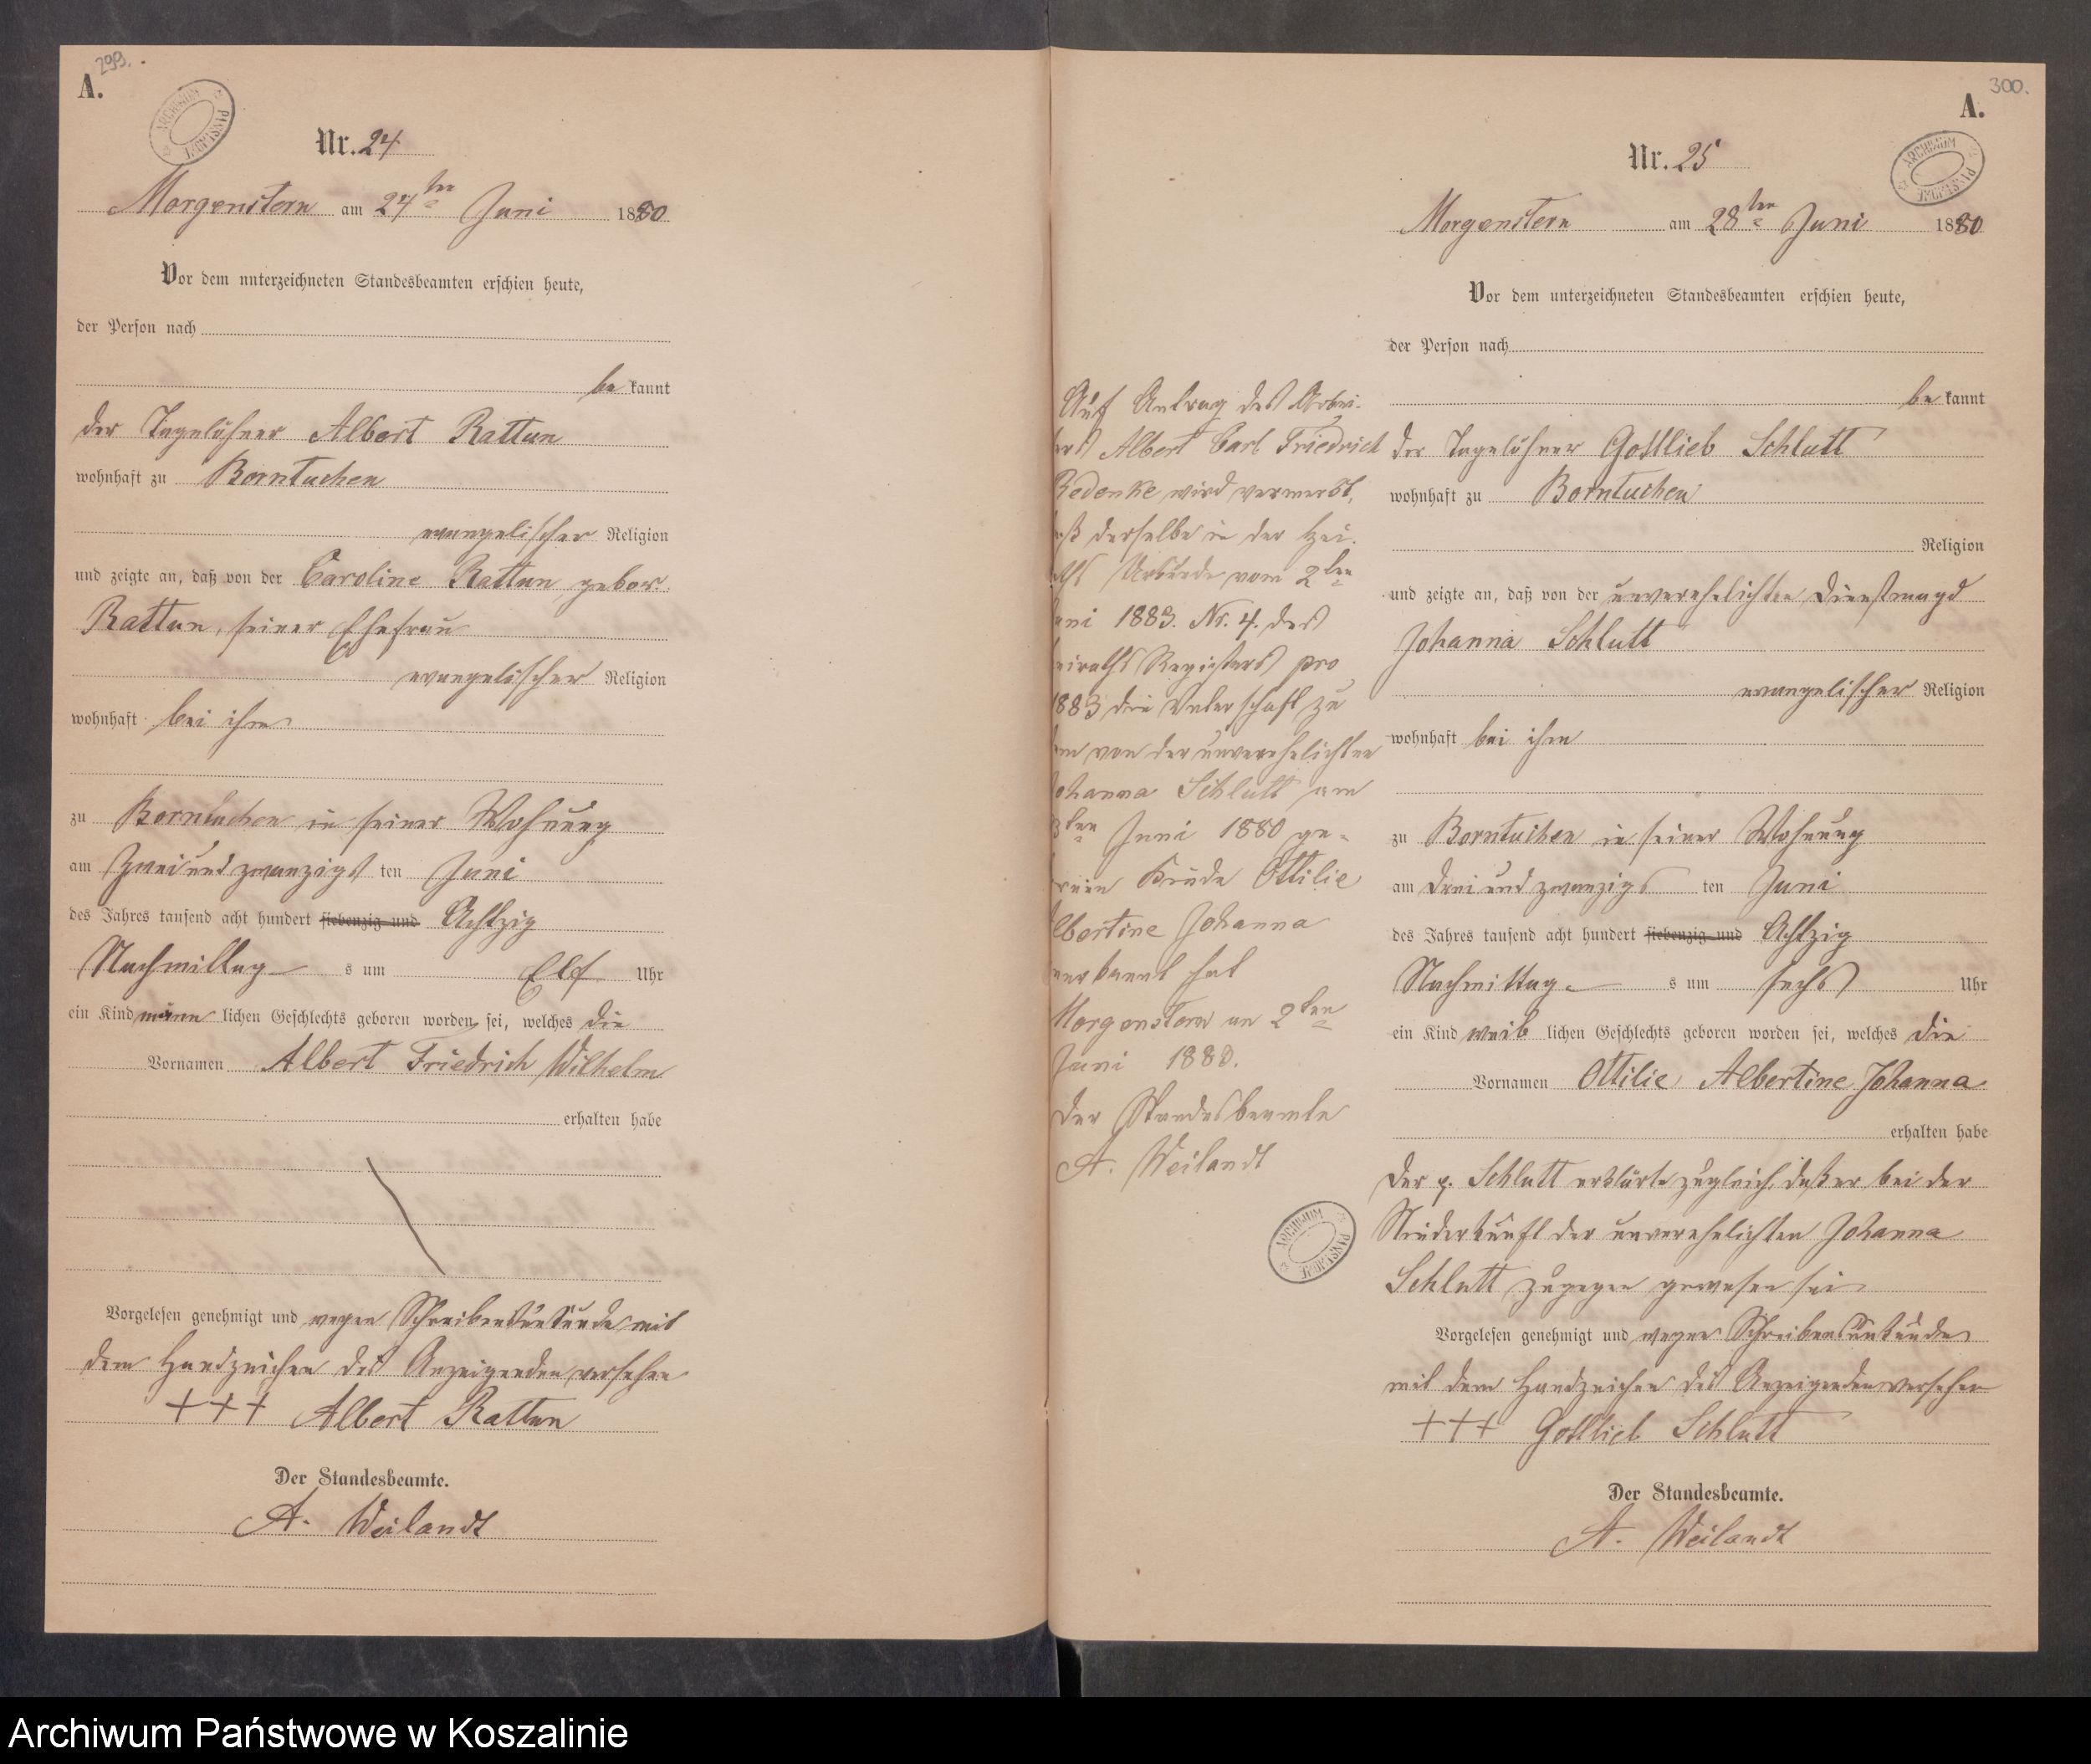 299.
A.
ARCHIWUM PAŃSTWOWE
Nr. 24
Morgenstern am 24ten Juni 1880
Vor dem unterzeichneten Standesbeamten erschien heute,
der Person nach
be kannt
der Tagelöhner Albert Rattun
wohnhaft zu Borntuchen
evangelischer Religion
und zeigte an, daß von der Caroline Rattun, gebor.
Rattun, seiner Ehefrau
evangelischer Religion
wohnhaft bei ihm
zu Borntuchen in seiner Wohnung
am zwei und zwanzigst ten Juni
des Jahres tausend acht hundert siebenzig und Achtzig
Nachmittag s um Elf Uhr
ein Kind männ lichen Geschlechts geboren worden sei, welches die
Vornamen Albert Friedrich Wilhelm
erhalten habe
Vorgelesen genehmigt und wegen Schreibensunkunde mit
dem Handzeichen des Anzeigenden versehen
+++ Albert Rattun
Der Standesbeamte.
A. Weilandt
Auf Antrag des Arbei-
ters Albert Carl Friedrich
Redenke wird vermerkt,
daß derselbe in der Hei-
raths Urkunde vom 2ten
Juni 1883. Nr. 4. des
Heiraths Registers pro
1883 die Vaterschaft zu
dem von der unverehelichten
Johanna Schlutt am
23ten Juni 1880 ge-
borenen Kinde Ottilie
Albertine Johanna
anerkannt hat
Morgenstern am 2ten
Juni 1883.
Der Standesbeamte
A. Weilandt
ARCHIWUM PAŃSTWOWE
300.
A.
ARCHIWUM PAŃSTWOWE
Nr. 25
Morgenstern am 28ten Juni 1880
Vor dem unterzeichneten Standesbeamten erschien heute,
der Person nach
be kannt
der Tagelöhner Gottlieb Schlutt
wohnhaft zu Borntuchen
Religion
und zeigte an, daß von der unverehelichten Dienstmagd
Johanna Schlutt
evangelischer Religion
wohnhaft bei ihm
zu Borntuchen in seiner Wohnung
am drei und zwanzigs ten Juni
des Jahres tausend acht hundert siebenzig und Achtzig
Nachmittag s um sechs Uhr
ein Kind weib lichen Geschlechts geboren worden sei, welches die
Vornamen Ottilie Albertine Johanna
erhalten habe
Der p. Schlutt erklärte zugleich, daß er bei der
Niederkunft der unverehelichten Johanna
Schlutt zugegen gewesen sei
Vorgelesen genehmigt und wegen Schreibensunkunde
mit dem Handzeichen des Anzeigenden versehen
+++ Gottlieb Schlutt
Der Standesbeamte.
A. Weilandt
Archiwum Państwowe w Koszalinie